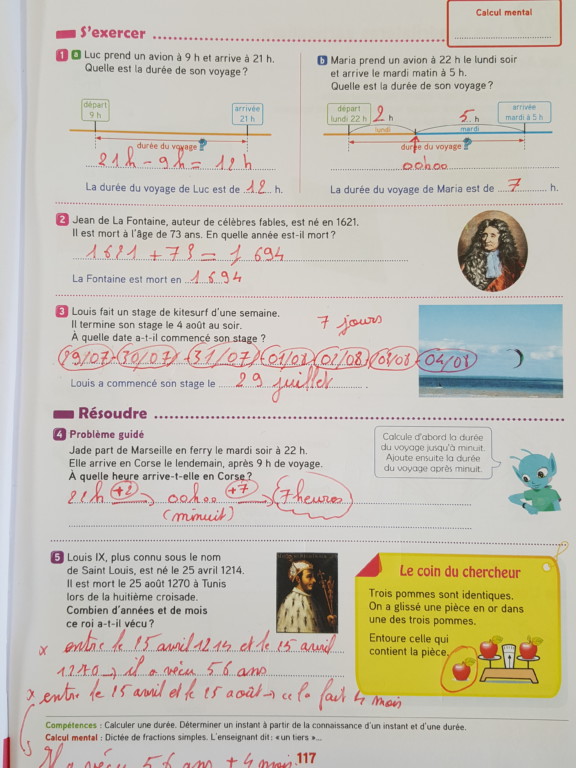 Calcul mental
S'exercer
1 a Luc prend un avion à 9 h et arrive à 21 h.
Quelle est la durée de son voyage ?
départ
9 h
arrivée
21 h
durée du voyage ?
21h - 9h = 12 h
La durée du voyage de Luc est de 12 h.
b Maria prend un avion à 22 h le lundi soir
et arrive le mardi matin à 5 h.
Quelle est la durée de son voyage ?
départ
lundi 22 h
2 h
5 h
arrivée
mardi à 5 h
lundi
mardi
durée du voyage ?
00h00
La durée du voyage de Maria est de 7 h.
2 Jean de La Fontaine, auteur de célèbres fables, est né en 1621.
Il est mort à l'âge de 73 ans. En quelle année est-il mort ?
1621 + 73 = 1 694
La Fontaine est mort en 1694
3 Louis fait un stage de kitesurf d'une semaine.
Il termine son stage le 4 août au soir.
À quelle date a-t-il commencé son stage ?
7 jours
29/07 - 30/07 - 31/07 01/08 02/08 03/08 04/08
Louis a commencé son stage le 29 juillet.
Résoudre
4 Problème guidé
Jade part de Marseille en ferry le mardi soir à 22 h.
Elle arrive en Corse le lendemain, après 9 h de voyage.
À quelle heure arrive-t-elle en Corse ?
Calcule d'abord la durée
du voyage jusqu'à minuit.
Ajoute ensuite la durée
du voyage après minuit.
22h +2 → 00h00 +7 → 7 heures
(minuit)
5 Louis IX, plus connu sous le nom
de Saint Louis, est né le 25 avril 1214.
Il est mort le 25 août 1270 à Tunis
lors de la huitième croisade.
Combien d'années et de mois
ce roi a-t-il vécu ?
x entre le 25 avril 1214 et le 25 avril
1270 → il a vécu 56 ans
x entre le 25 avril et le 25 août → cela fait 4 mois
Il a vécu 56 ans + 4 mois
Le coin du chercheur
Trois pommes sont identiques.
On a glissé une pièce en or dans
une des trois pommes.
Entoure celle qui
contient la pièce.
Compétences : Calculer une durée. Déterminer un instant à partir de la connaissance d'un instant et d'une durée.
Calcul mental : Dictée de fractions simples. L'enseignant dit : « un tiers »...
117